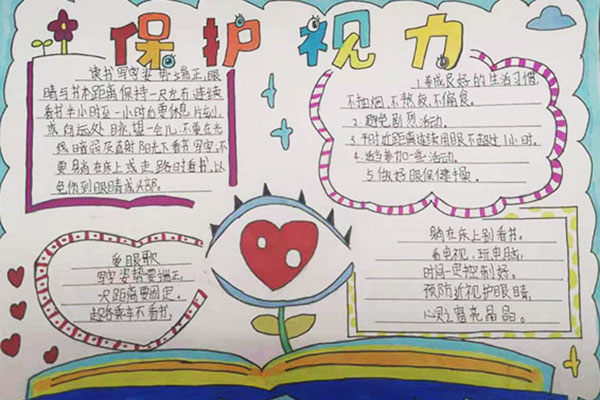 保护视力
读书写字姿势端正,眼
睛与书本距离保持一尺左右连续
看书半小时至一小时台要休息片刻
或向远处眺望一会儿,不要在光
线暗弱及直射阳光下看书写字,不
要躺在床上或走路时看书,以
免伤到眼睛或头部。
1.养成良好的生活习惯,
不抽烟,不熬夜,不偏食。
2.避免剧烈活动。
3.平时近距离连续用眼不超过1小时。
4.适当参加一些活动。
5.做好眼保健操。
爱眼歌
写字姿势要端正,
一尺距离要固定。
走路乘车不看书,
躺在床上别看书。
看电视,玩电脑,
时间一定控制好。
预防近视护眼睛,
心灵之窗亮晶晶。